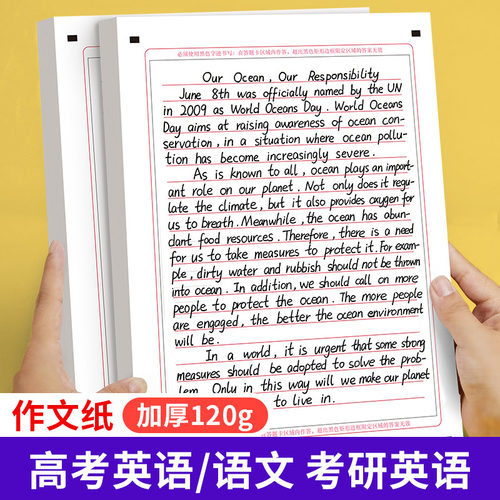 必须使用黑色字迹书写；在答题卡区域内作答，超出黑色矩形边框限定区域的答案无效
Our Ocean, Our Responsibility
June 8th was officially named by the UN
in 2009 as World Oceans Day. World Oceans
Day aims at raising awareness of ocean con-
servation, in a situation where ocean pollu-
tion has become increasingly severe.
As is known to all, ocean plays an import-
ant role on our planet. Not only does it regu-
late the climate, but it also provides oxygen for
us to breath. Meanwhile, the ocean has abun-
dant food resources. Therefore, there is a need
for us to take measures to protect it. For exam-
ple, dirty water and rubbish should not be thrown
into ocean. In addition, we should call on more
people to protect the ocean. The more people
are engaged, the better the ocean environment
will be.
In a world, it is urgent that some strong
measures should be adopted to solve the prob-
lem. Only in this way will we make our planet
to live in.
在答题卡区域内作答，超出黑色矩形边框限定区域的答案无效
作文纸 加厚120g
高考英语/语文 考研英语